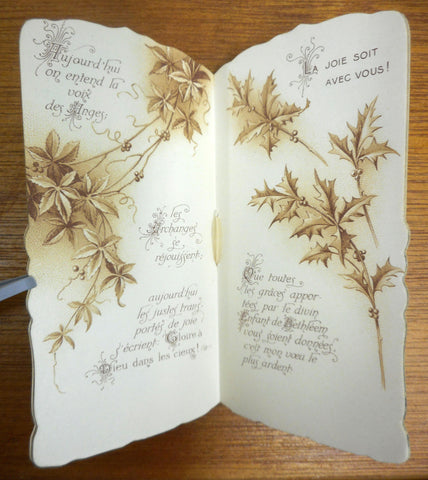 Aujourd'hui
on entend la
voix
des Anges;
les
Archanges
se
réjouissent;
aujourd'hui
les justes trans
portés de joie
s'écrient: Gloire à
Dieu dans les cieux!
LA JOIE SOIT
AVEC VOUS!
Que toutes
les grâces appor-
tées par le divin
Enfant de Bethléem
vous soient données
c'est mon vœu le
plus ardent.